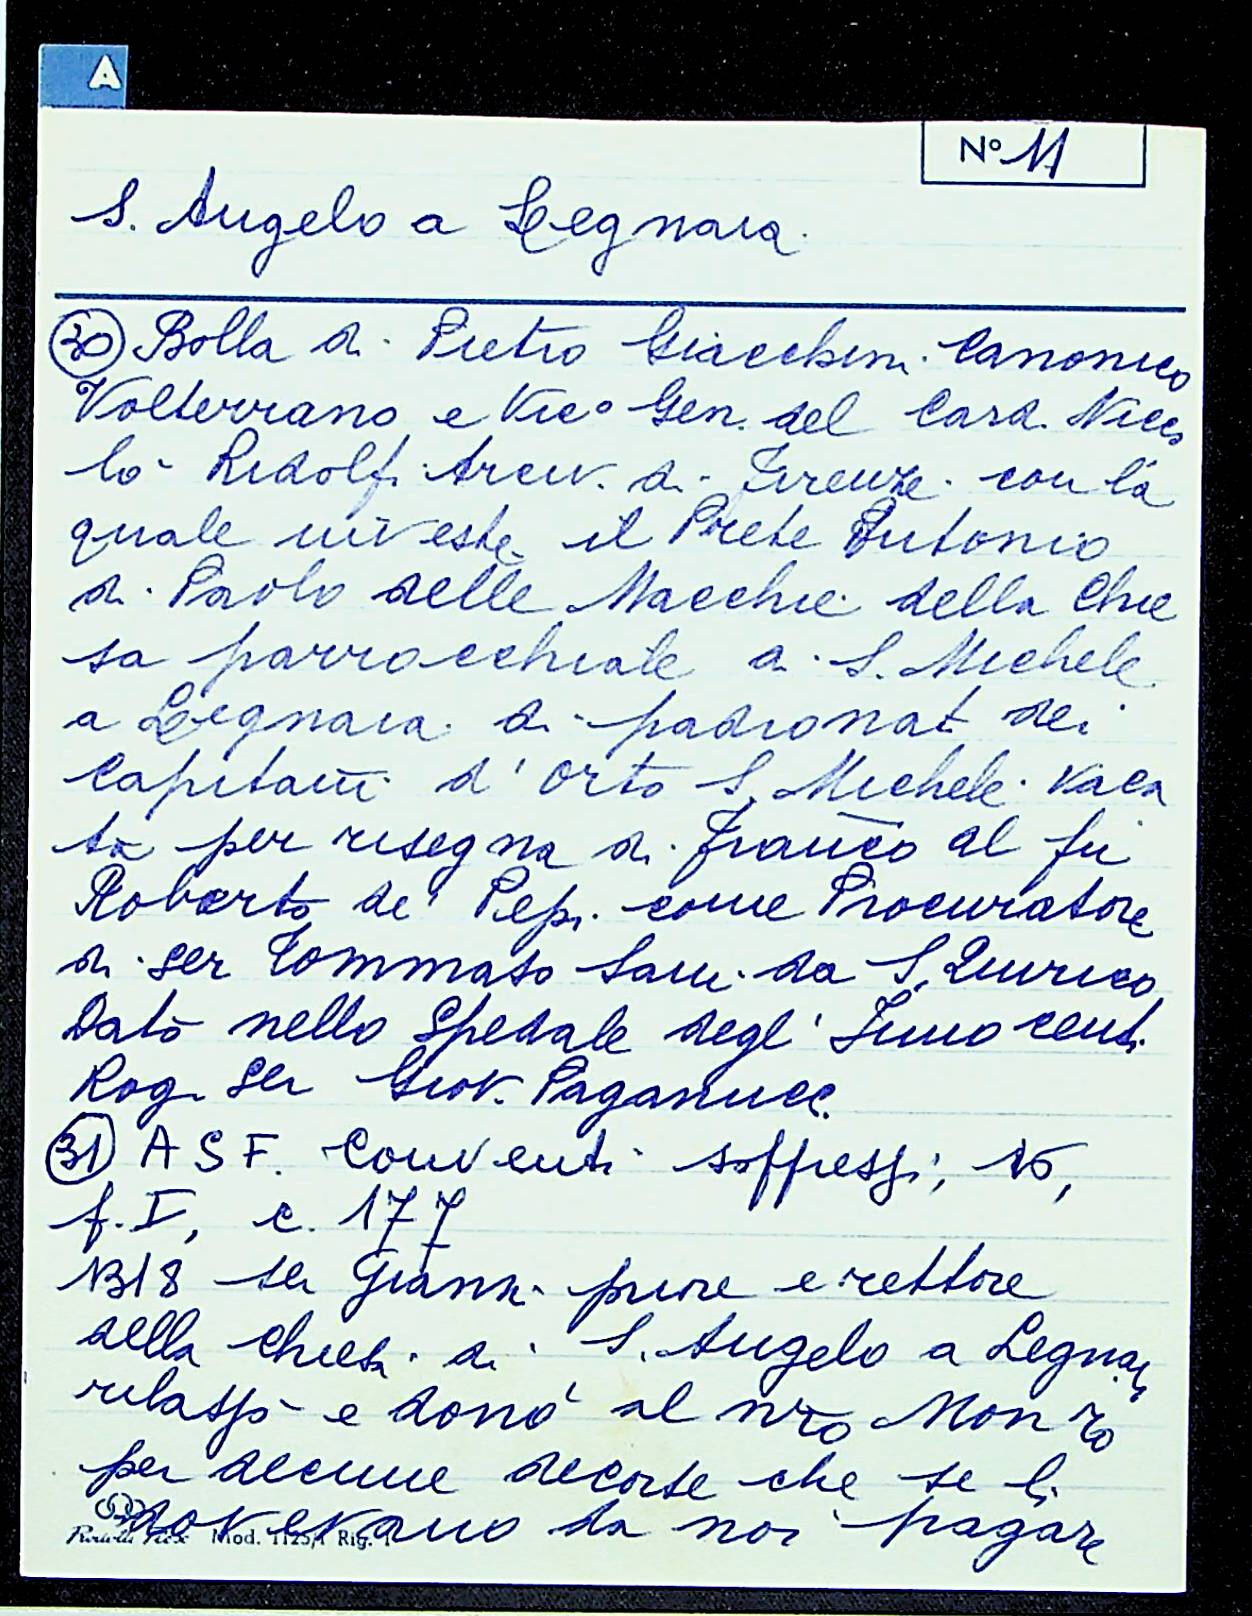 A
N° 11
S. Angelo a Legnaia.
30 Bolla di Pietro Giacchini Canonico
Volterrano e Vic° Gen. del Card. Nicco
lò Ridolfi Arciv. di Firenze con la
quale investe il Prete Antonio
di Paolo delle Macchie della Chie
sa parrocchiale di S. Michele
a Legnaia di padronat dei
Capitani d'Orto S. Michele vaca
ta per risegna di Franco al fu
Roberto de' Pepi come Procuratore
di ser Tommaso da S. Quirico
Dato nello Spedale degl' Innocenti
Rog. Ser Giov. Paganucci
31 A S F. Conventi soppressi,
f. I, c. 177
1318 ser Gianni priore e rettore
della chiesa di S. Angelo a Legnaia
rilassò e donò al nro Mon ro
per decime decorse che se li
dovevano da noi pagare
Mod. 1125/1 Rig. 1